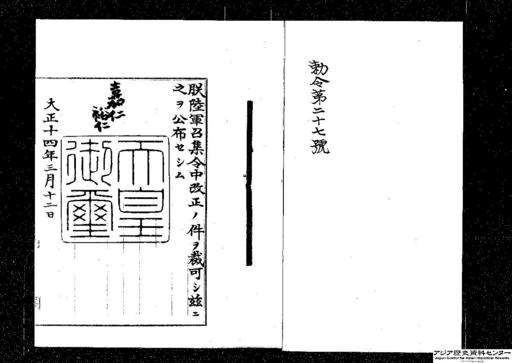 勅令第二十七號
朕陸軍召集令中改正ノ件ヲ裁可シ茲ニ
之ヲ公布セシム
嘉仁
裕仁
天皇
御璽
大正十四年三月十二日
アジア歴史資料センター
Japan Center for Asian Historical Records